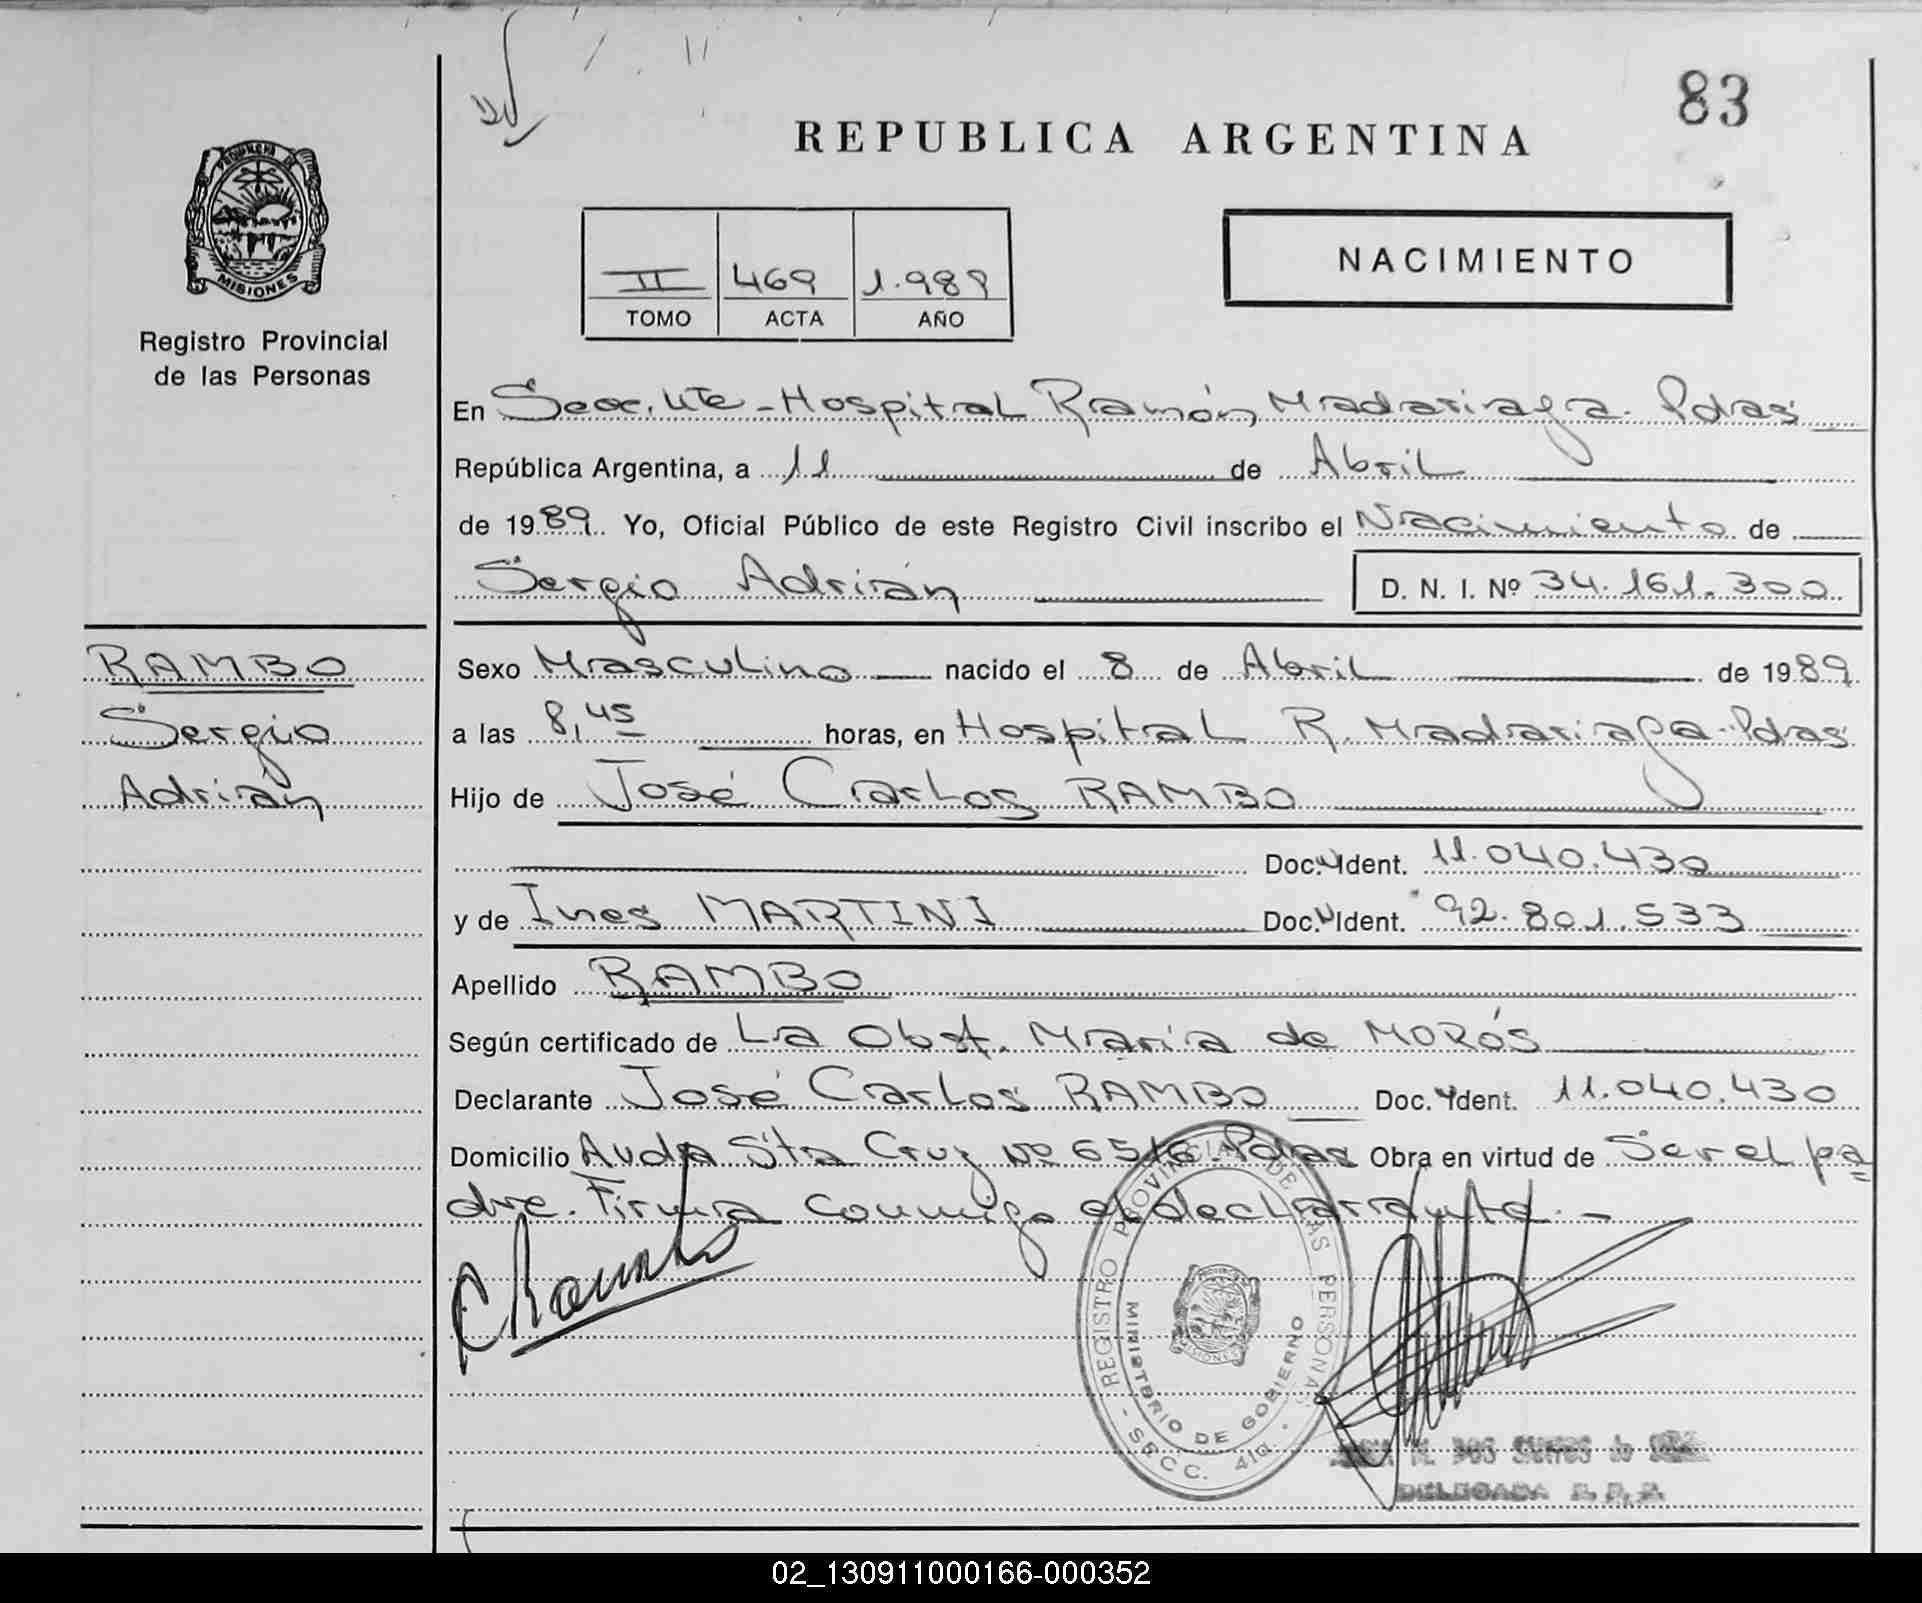 83
REPUBLICA ARGENTINA
PROVINCIA DE
MISIONES
Registro Provincial
de las Personas
II 469 1.989
TOMO ACTA AÑO
NACIMIENTO
En Secc. 41e - Hospital Ramón Madariaga. Pdas
República Argentina, a 11 de Abril
de 1989 Yo, Oficial Público de este Registro Civil inscribo el Nacimiento de
Sergio Adrián D. N. I. Nº 34.161.300
RAMBO
Sergio
Adrián
Sexo Masculino nacido el 8 de Abril de 1989
a las 8,45 horas, en Hospital R. Madariaga - Pdas
Hijo de José Carlos RAMBO
Doc. Ident. 11.040.430
y de Ines MARTINI Doc. Ident. 92.801.533
Apellido RAMBO
Según certificado de La Obst. María de MORÓS
Declarante José Carlos RAMBO Doc. Ident. 11.040.430
Domicilio Avda Sta Cruz Nº 6516 Pdas Obra en virtud de Ser el pa=
dre. Firma conmigo el declarante. -
C Rambo
REGISTRO PROVINCIAL DE LAS PERSONAS
MINISTERIO DE GOBIERNO
- SECC. 41a. -
M. DOS SANTOS de
DELEGADA R. P. P.
02_130911000166-000352